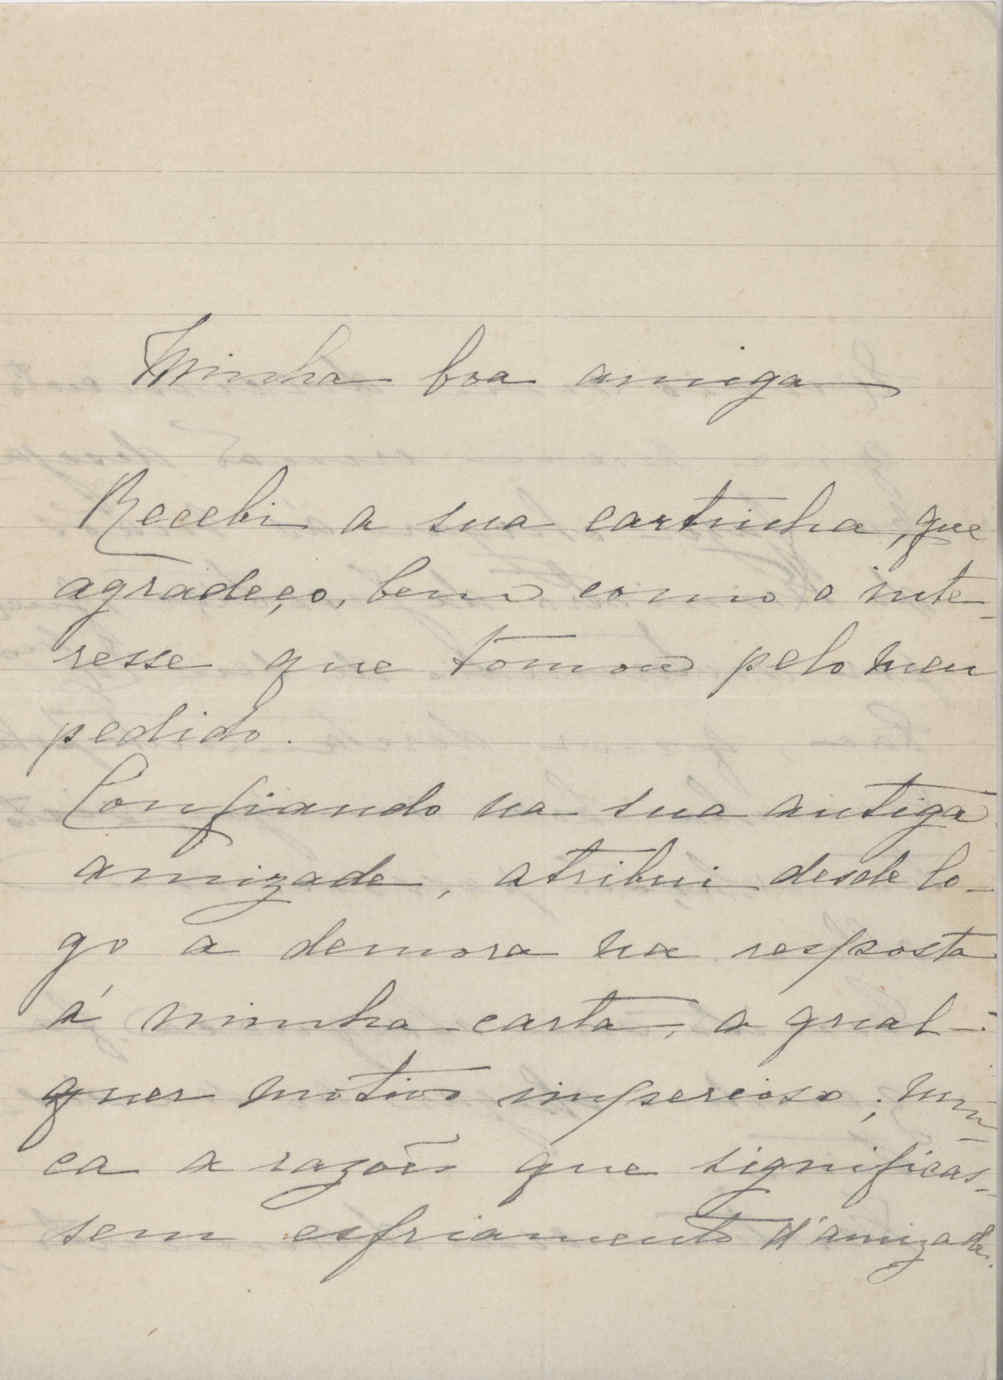 Minha boa amiga
Recebi a sua cartinha, que
agradeço, bem como o inte-
resse que tomou pelo meu
pedido.
Confiando na sua antiga
amizade, atribui desde lo-
go a demora na resposta
á minha carta, a qual-
quer motivo imperioso; nun-
ca a razões que significas-
sem esfriamento d'amizade.